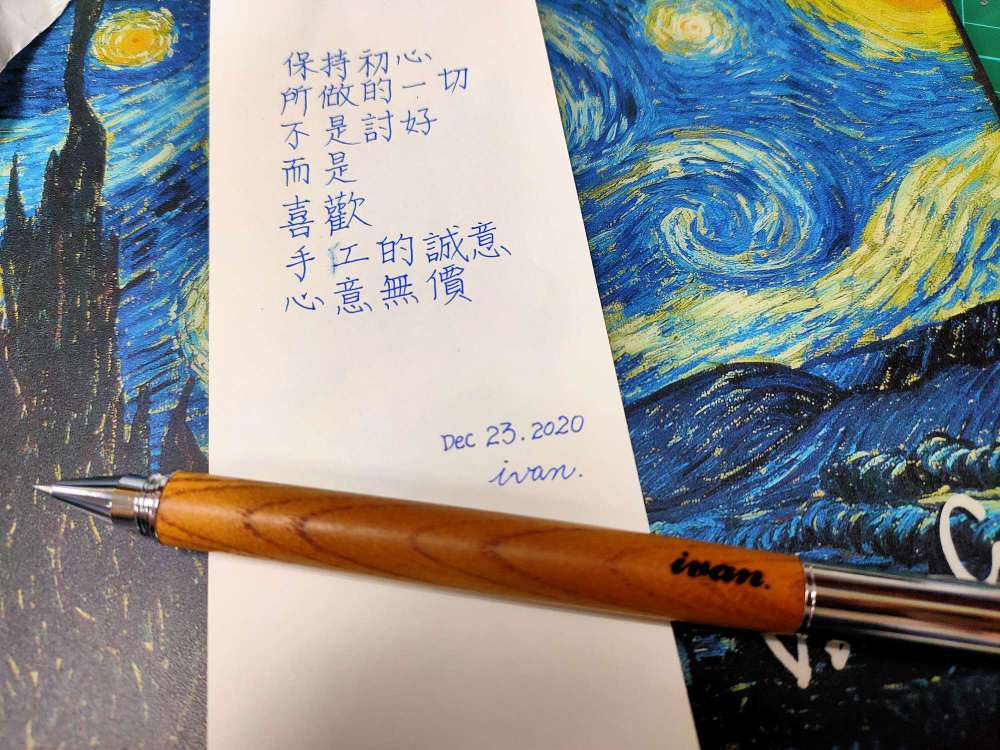 保持初心
所做的一切
不是討好
而是
喜歡
手工的誠意
心意無價
Dec 23.2020
ivan.
ivan.